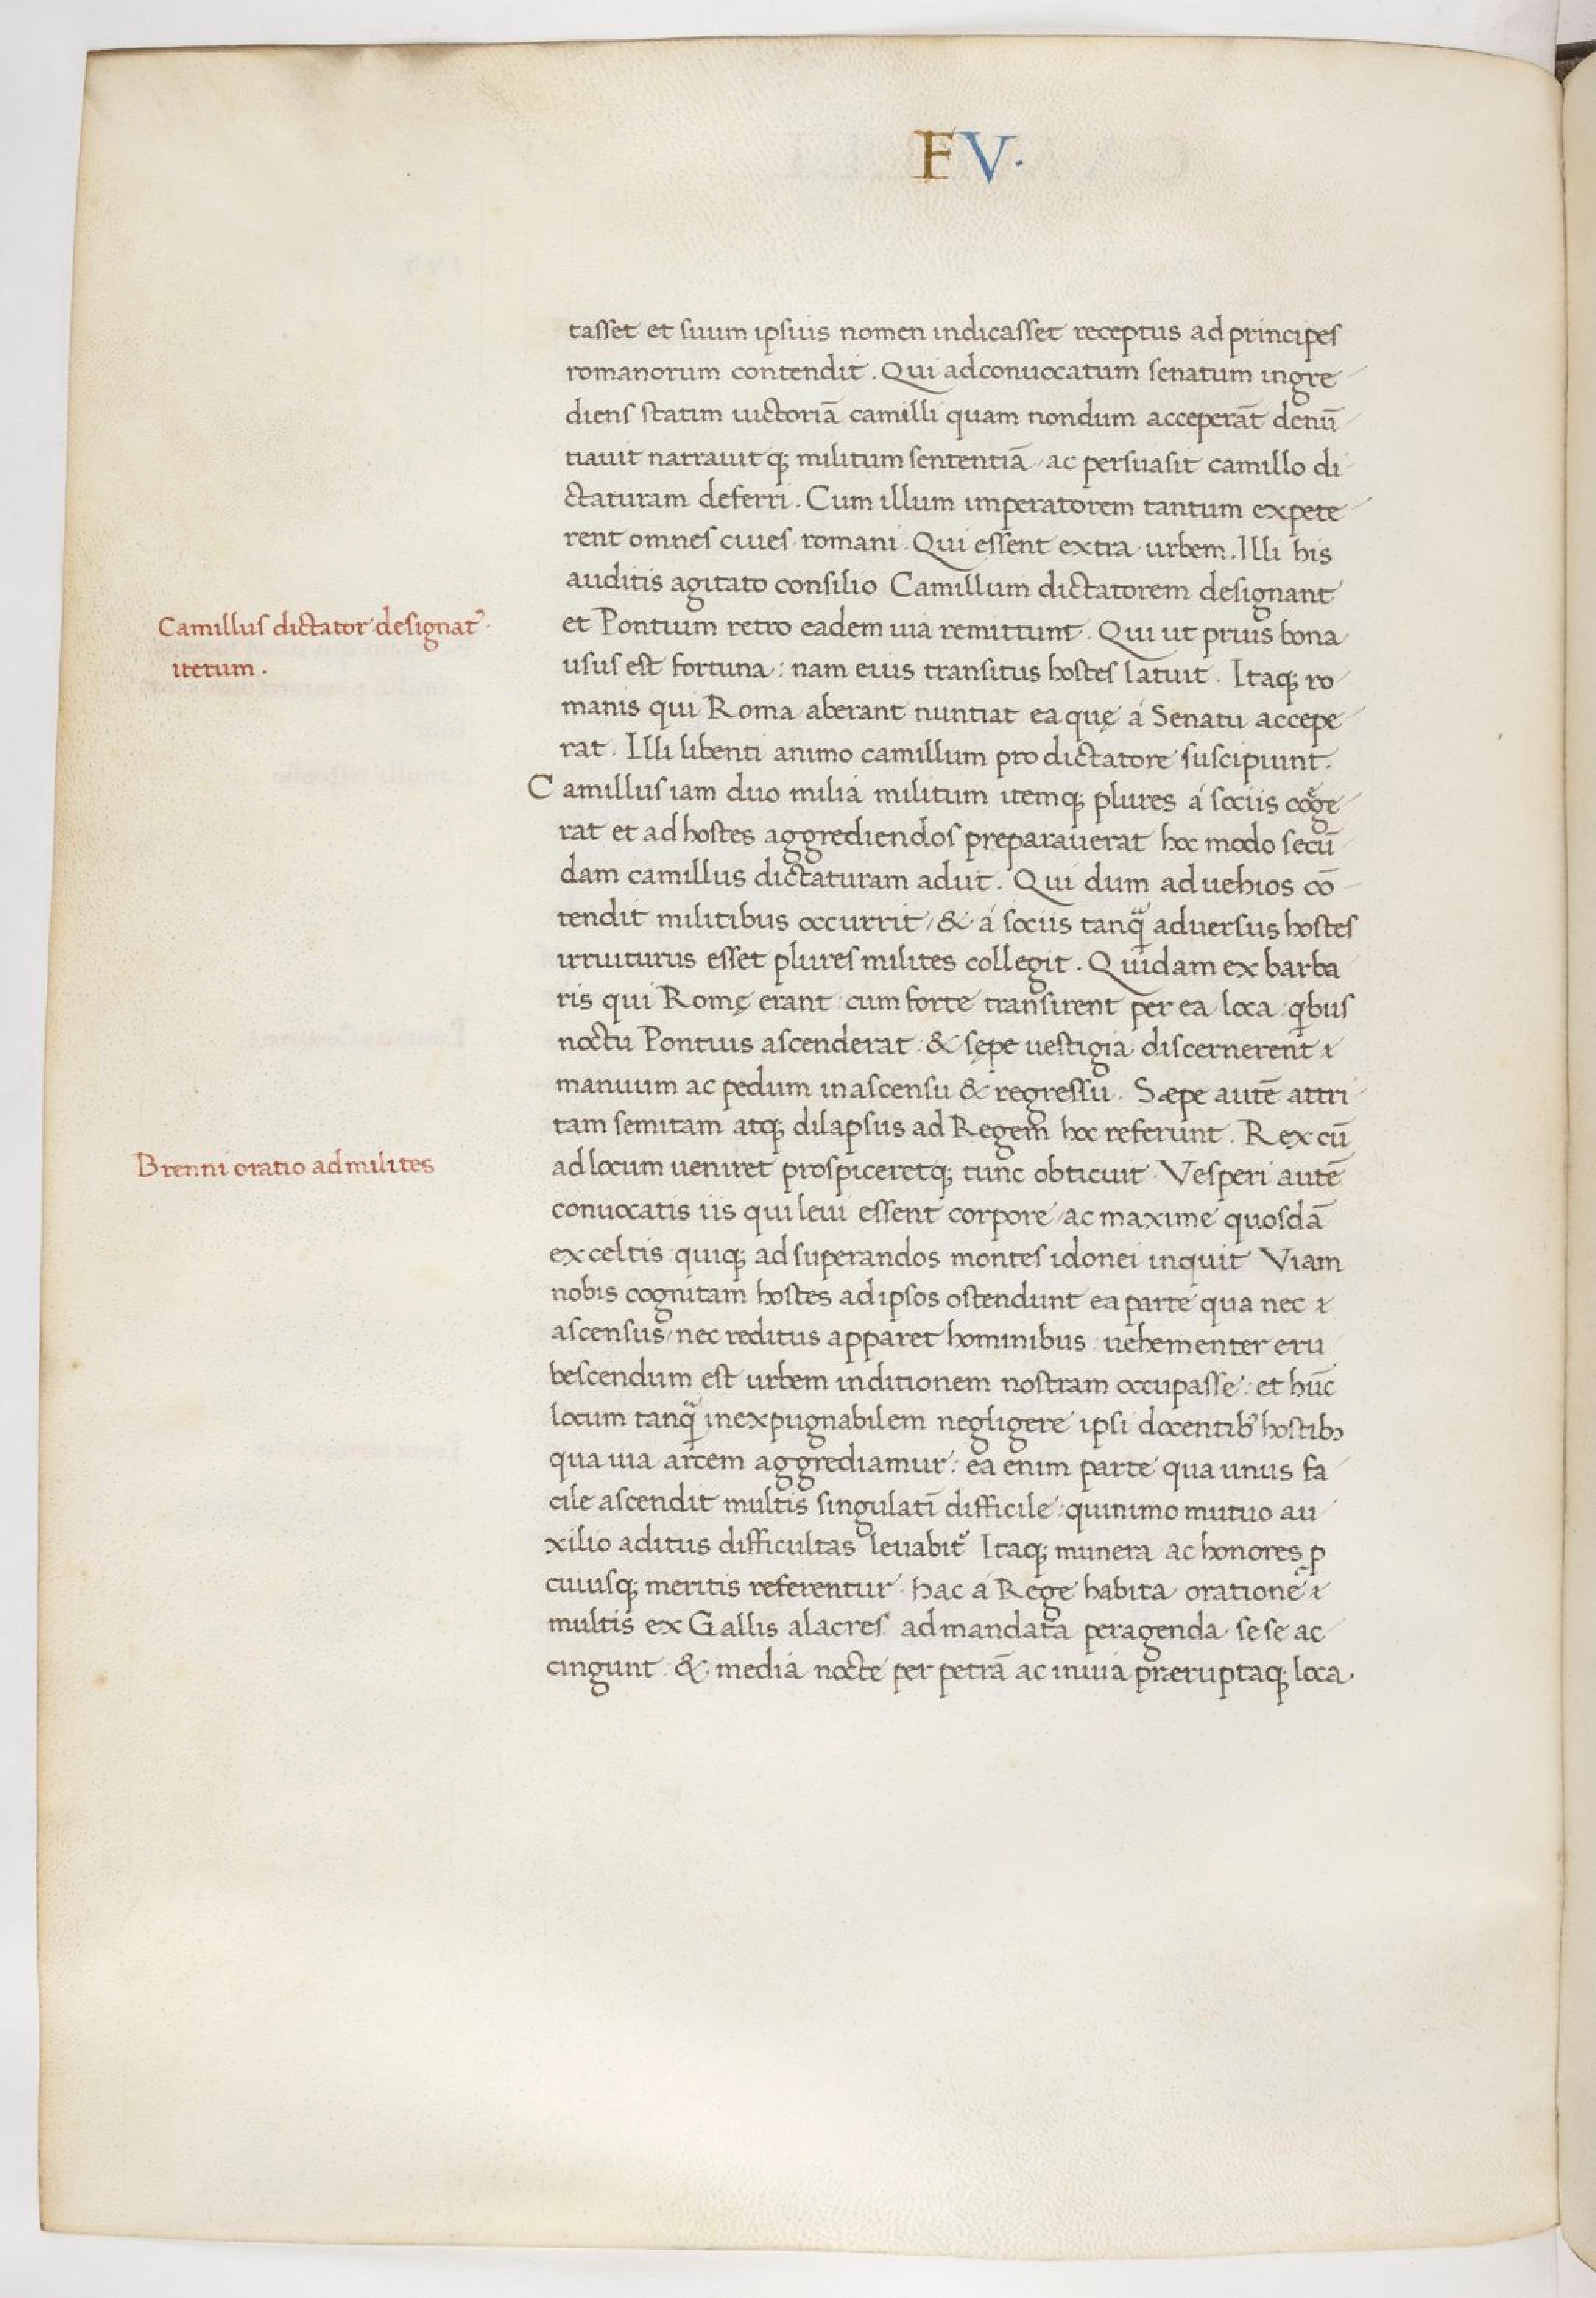 FV·
tasset et suum ipsius nomen indicasset receptus ad principes
romanorum contendit. Qui ad conuocatum senatum ingre
diens statim uictoriā camilli quam nondum acceperāt denū
tiauit narrauitq; militum sententiā / ac persuasit camillo di
ctaturam deferri. Cum illum imperatorem tantum expete
rent omnes ciues romani. Qui essent extra urbem. Illi his
auditis agitato consilio Camillum dictatorem designant
Camillus dictator designat᾽
iterum.
et Pontium retro eadem uia remittunt. Qui ut prius bona
usus est fortuna: nam eius transitus hostes latuit. Itaq; ro
manis qui Roma aberant nuntiat ea quę á Senatu accepe
rat. Illi libenti animo camillum pro dictatore suscipiunt.
Camillus iam duo milia militum itemq; plures á sociis coge
rat et ad hostes aggrediendos preparauerat hoc modo secū
dam camillus dictaturam adiit. Qui dum ad uehios cō
tendit militibus occurrit / & á sociis tanq̃ aduersus hostes
irruiturus esset plures milites collegit. Quidam ex barba
ris qui Romę erant: cum forte transirent per ea loca: qbus
noctu Pontius ascenderat: & sępe uestigia discernerent
manuum ac pedum in ascensu & regressu. Sæpe autē attri
tam semitam atq; dilapsus ad Regem hoc referunt. Rex cū
ad locum ueniret prospiceretq; tunc obticuit. Vesperi autē
Brenni oratio ad milites
conuocatis iis qui leui essent corpore / ac maxime quosdā
ex celtis: quiq; ad superandos montes idonei inquit Viam
nobis cognitam hostes ad ipsos ostendunt ea parte qua nec
ascensus / nec reditus apparet hominibus: uehementer eru
bescendum est urbem in ditionem nostram occupasse: et hūc
locum tanq̃ inexpugnabilem negligere ipsi docentib᾽ hostib᾽
qua uia arcem aggrediamur: ea enim parte qua unus fa
cile ascendit multis singulatī difficile: quinimo mutuo au
xilio aditus difficultas leuabit᾽ Itaq; munera ac honores p
cuiusq; meritis referentur. hac á Rege habita oratione
multis ex Gallis alacres ad mandata peragenda sese ac
cingunt: & media nocte per petrā ac inuia præruptaq; loca